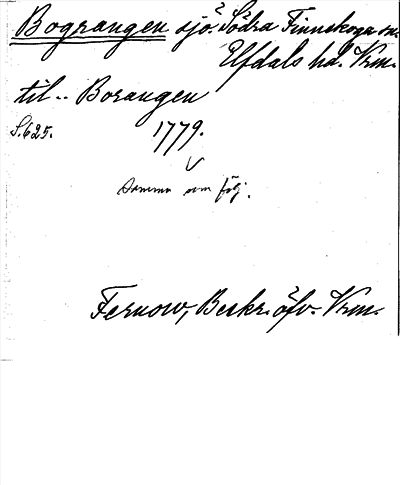 Bograngen sjö? Södra Finnskoga sn.
Elfdals hd. Vrm.
til.. Borangen
S. 625. 1779.
samma som följ.
Fernow, Beskr. öfv. Vrm.